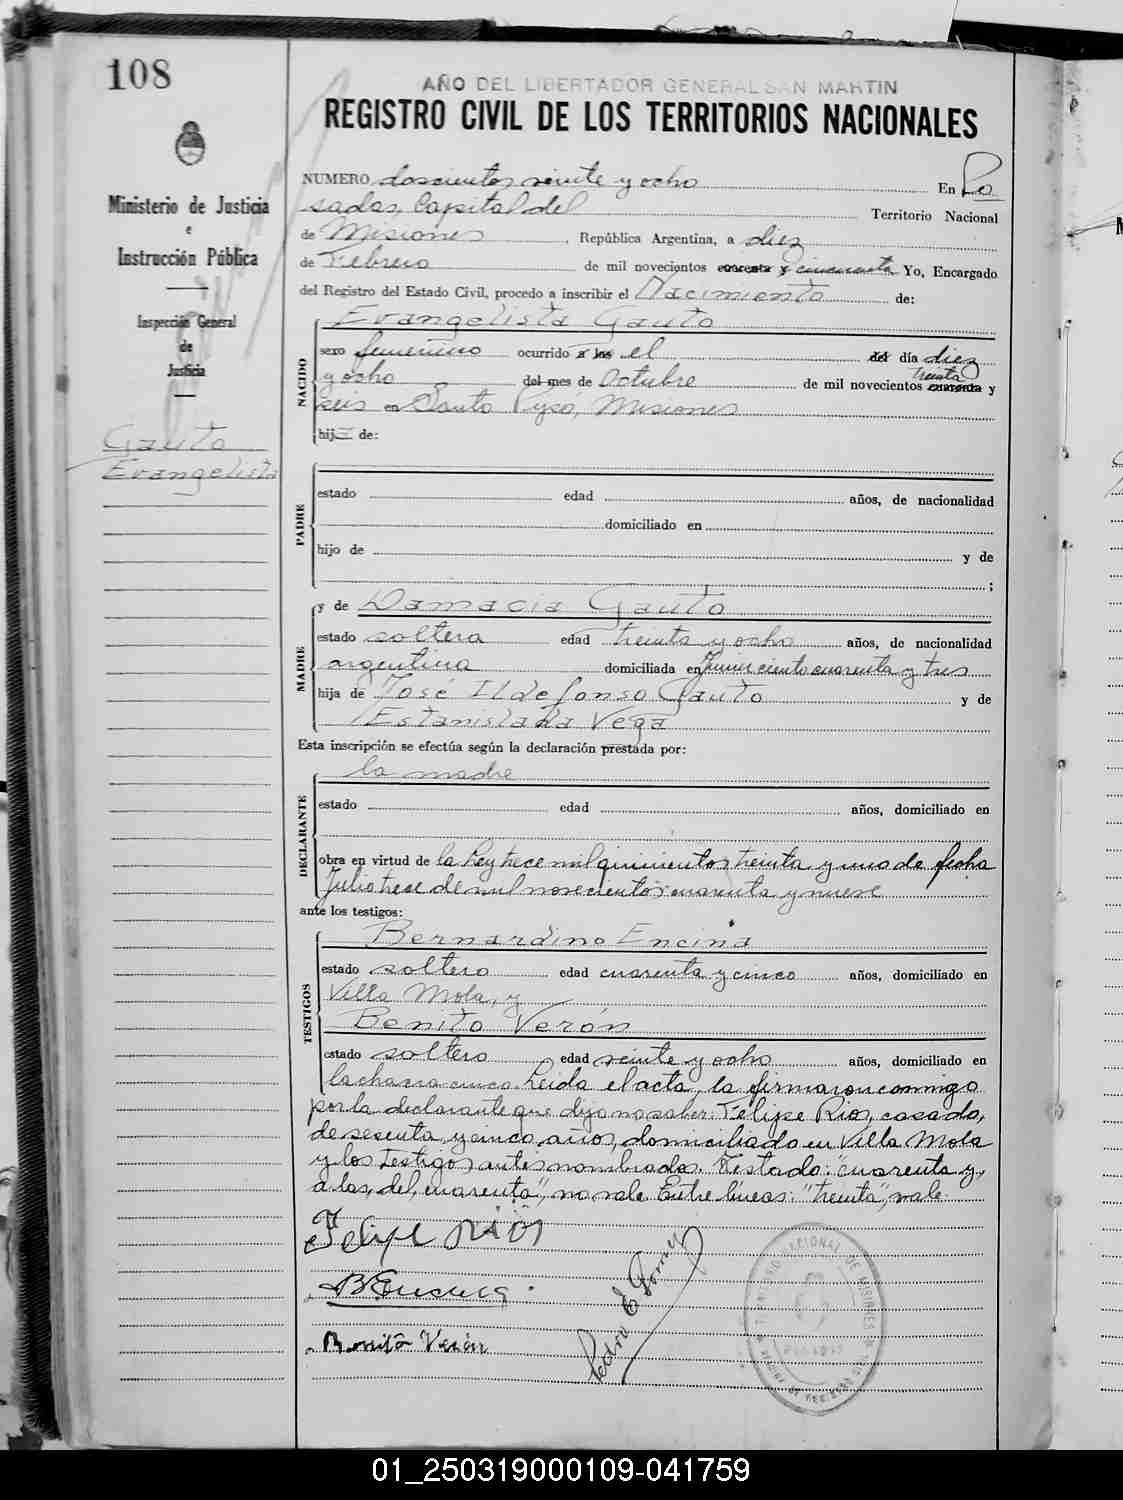 108
AÑO DEL LIBERTADOR GENERAL SAN MARTIN
REGISTRO CIVIL DE LOS TERRITORIOS NACIONALES
Ministerio de Justicia
e
Instrucción Pública
Inspección General
de
Justicia
Gauto
Evangelista
NUMERO doscientos veinte y ocho En Po
sadas, Capital del Territorio Nacional
de Misiones, República Argentina, a diez
de Febrero de mil novecientos cuarenta y cincuenta Yo, Encargado
del Registro del Estado Civil, procedo a inscribir el Nacimiento de:
NACIDO
Evangelista Gauto
sexo femenino ocurrido a las el del día diez
y ocho del mes de Octubre de mil novecientos cuarenta treinta y
seis en Santo Pipó, Misiones
hija de:
PADRE
estado edad años, de nacionalidad
domiciliado en
hijo de y de
;
MADRE
y de Damacia Gauto
estado soltera edad treinta y ocho años, de nacionalidad
argentina domiciliada en Junin ciento cuarenta y tres
hija de José Ildefonso Gauto y de
Estanislada Vega
Esta inscripción se efectúa según la declaración prestada por:
DECLARANTE
la madre
estado edad años, domiciliado en
obra en virtud de la Ley trece mil quinientos treinta y uno de fecha
Julio trece de mil novecientos cuarenta y nueve
ante los testigos:
TESTIGOS
Bernardino Encina
estado soltero edad cuarenta y cinco años, domiciliado en
Villa Mola, y
Benito Verón
estado soltero edad veinte y ocho años, domiciliado en
la chacra cinco. Leida el acta, la firmaron conmigo
por la declarante que dijo no saber: Felipe Rios, casado,
de sesenta y cinco años, domiciliado en Villa Mola
y los testigos antes nombrados. Testado: "cuarenta y,
a las, del, cuarenta", no vale. Entre líneas: "treinta", vale.
Felipe Rios
B Encina
Benito Verón
Pedro E Gomez
TERRITORIO NACIONAL DE MISIONES
POSADAS
01_250319000109-041759